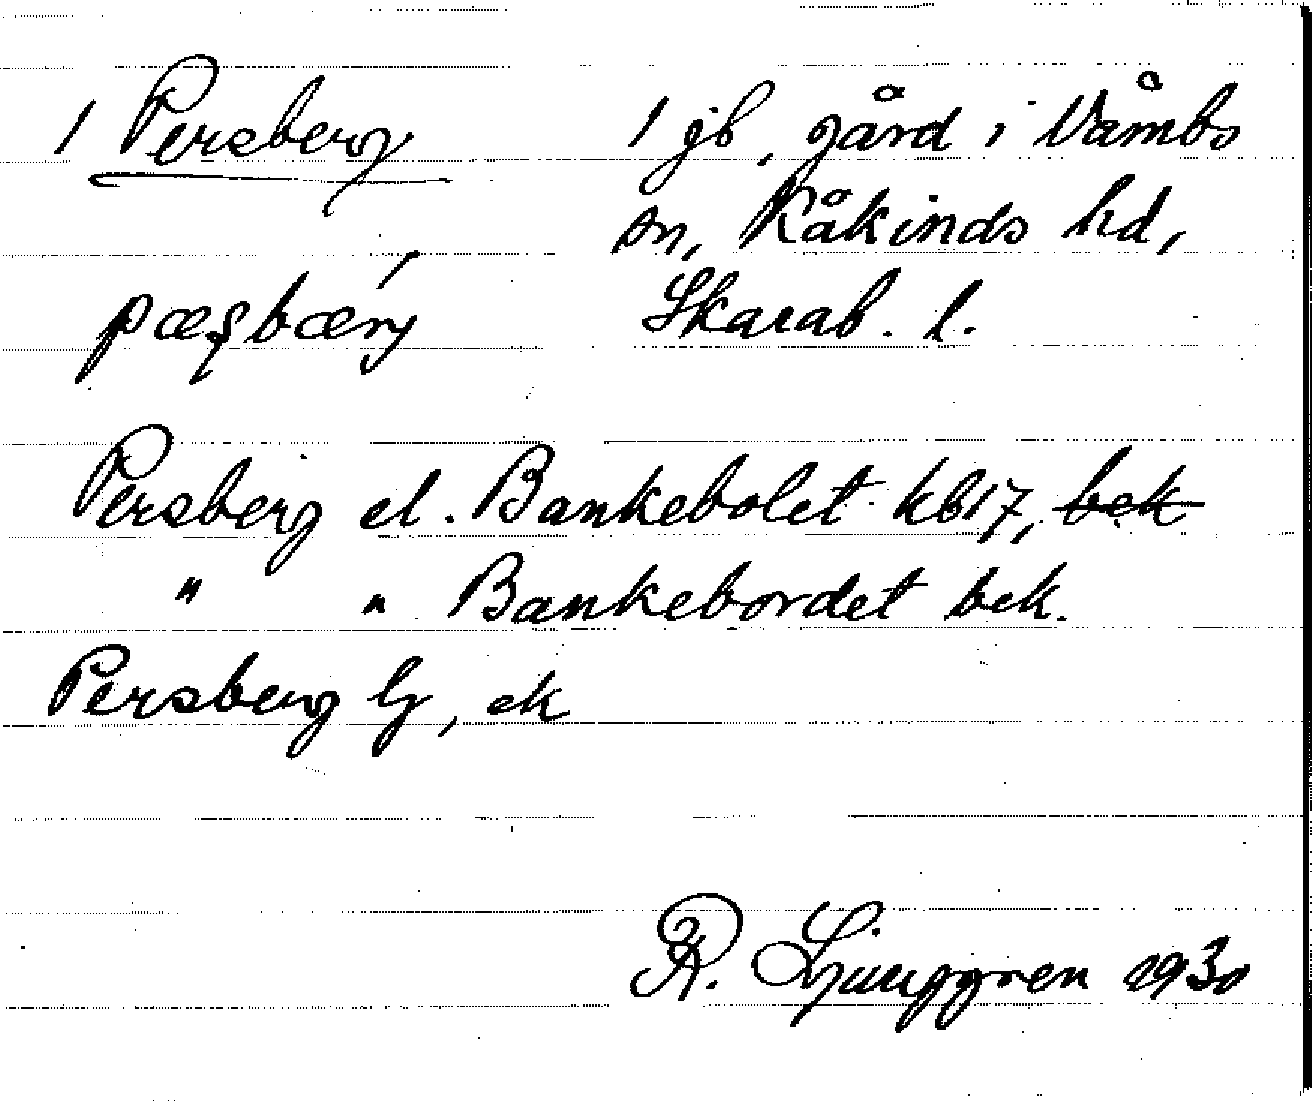 1 Persberg 1 jb, gård i Våmbs
sn, Kåkinds hd,
pæʂbærj Skarab. l.
Persberg el. Bankebolet kb17, bek
" " Bankebordet bek.
Persberg G, ek
R. Ljunggren 1930